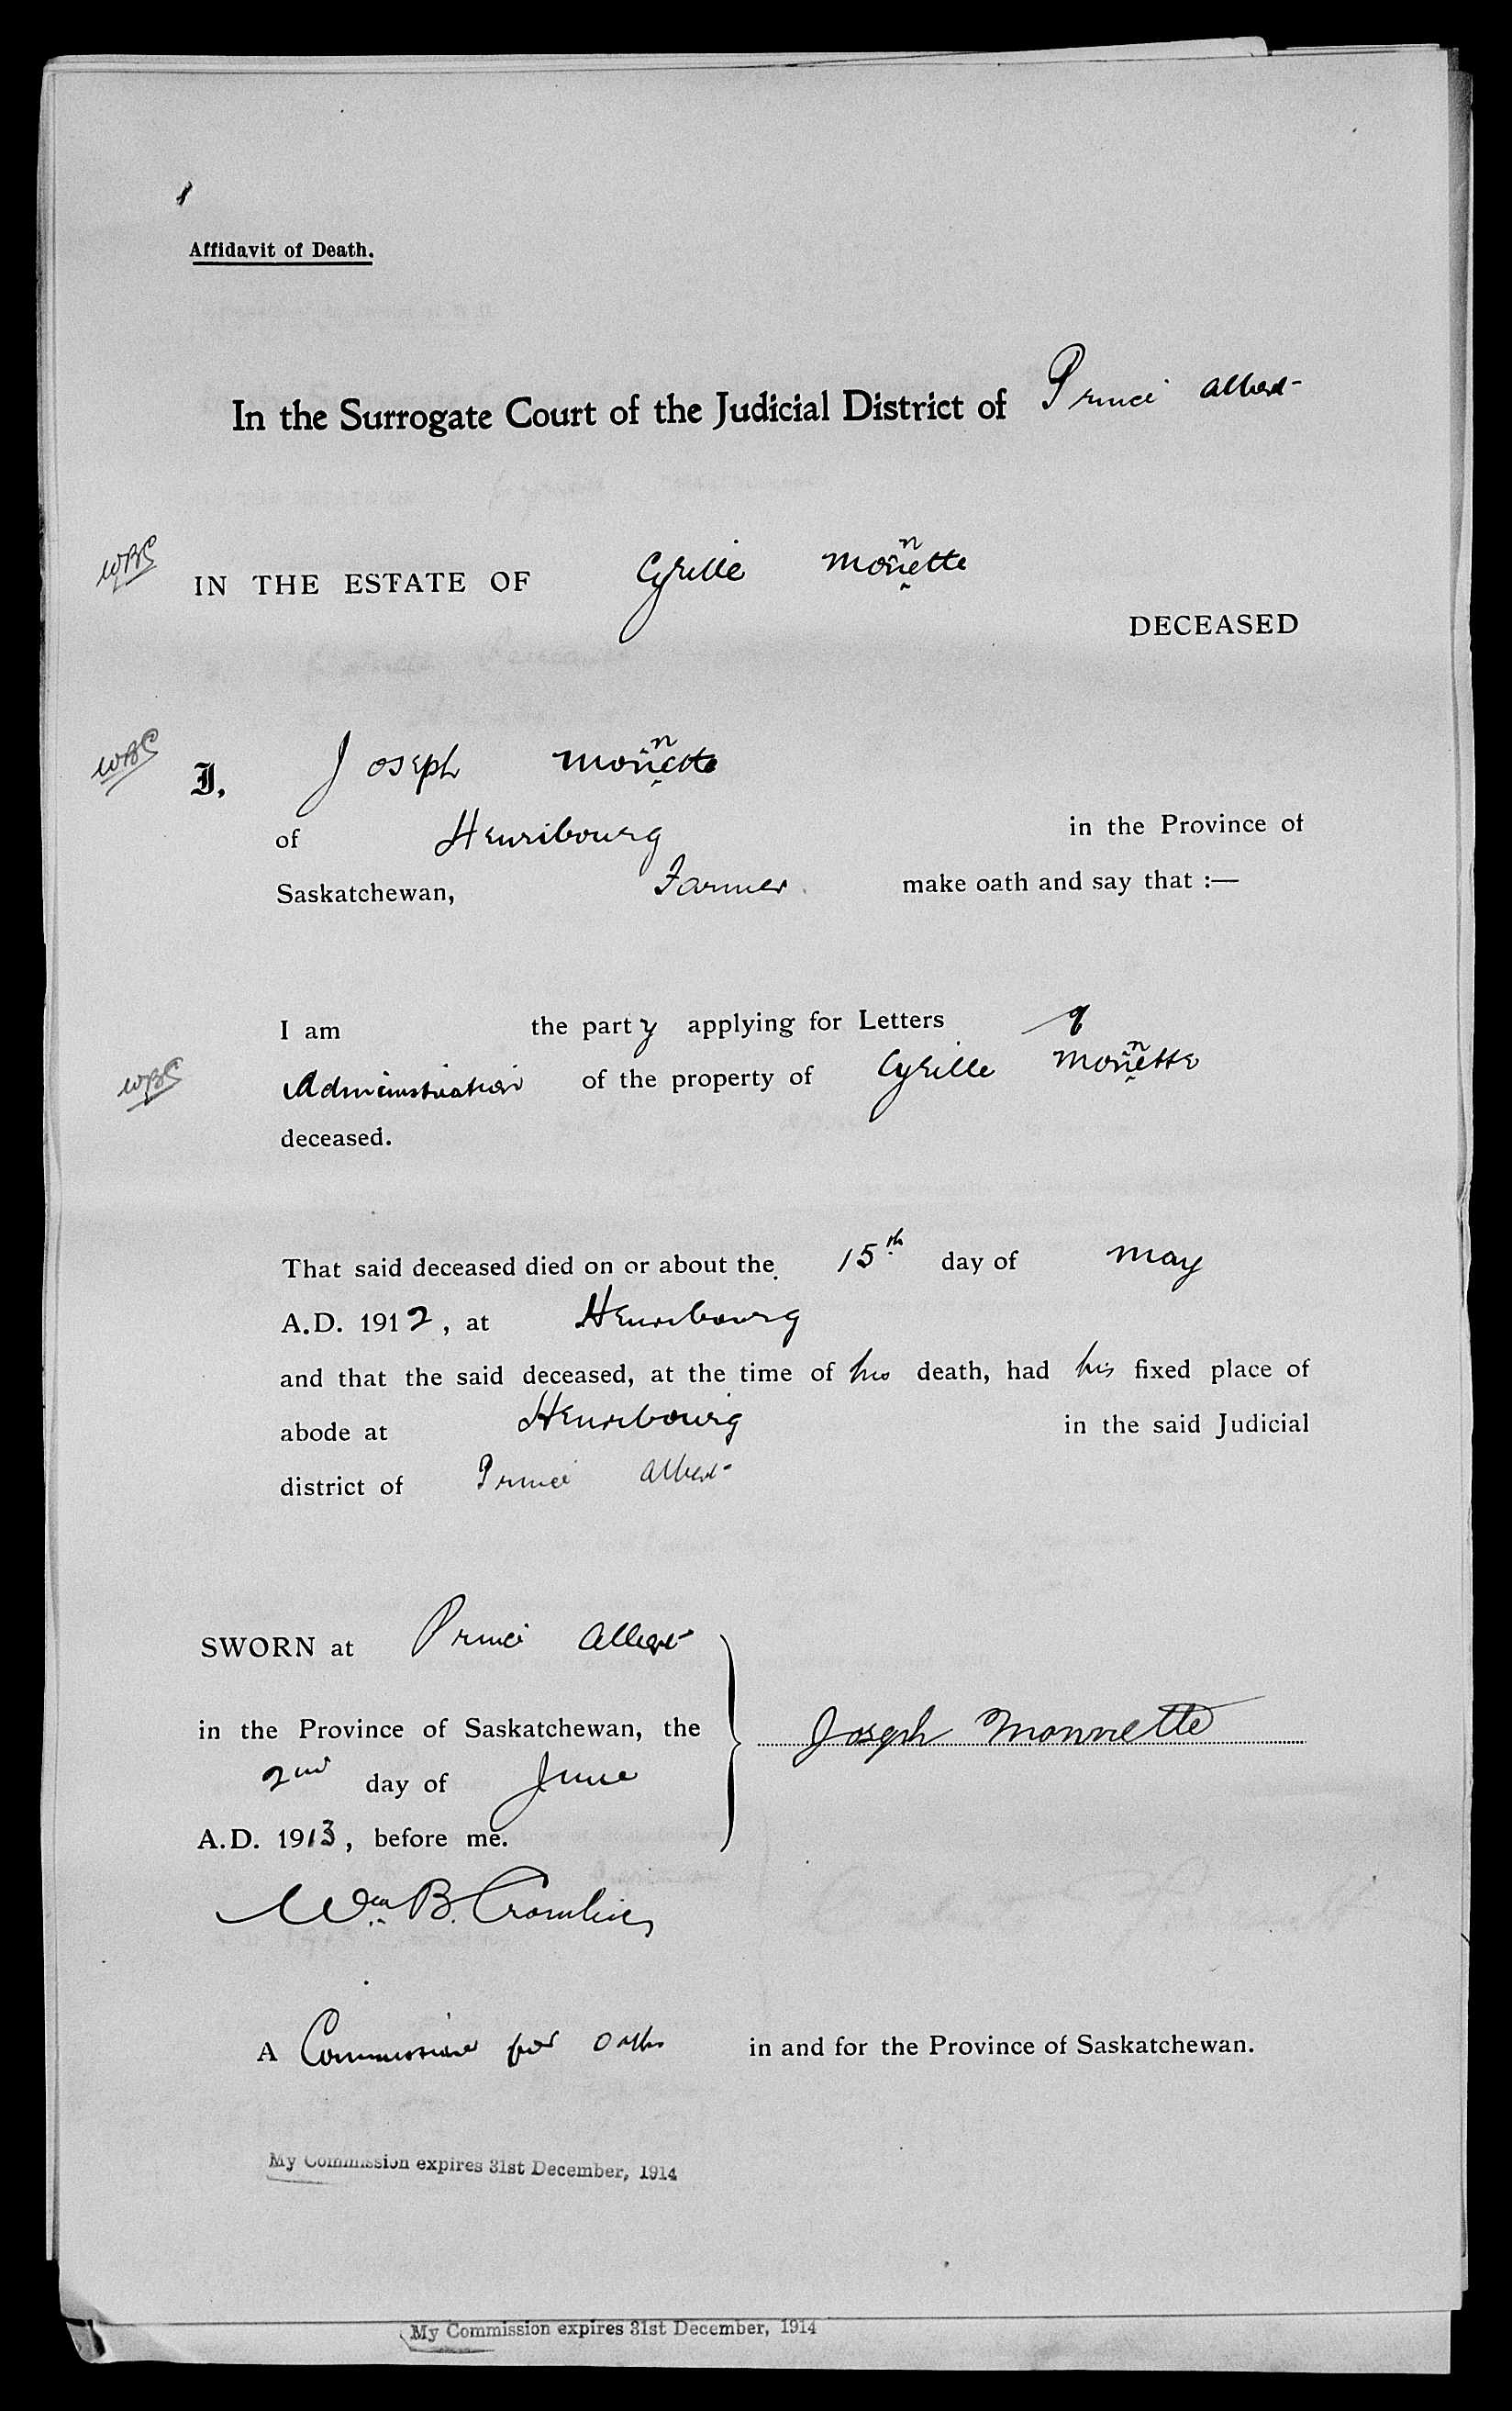 Affidavit of Death.
In the Surrogate Court of the Judicial District of Prince Albert
WBC IN THE ESTATE OF Cyrille Monnette
DECEASED
WBC I, Joseph Monnette
of Henribourg in the Province of
Saskatchewan, Farmer. make oath and say that :—
I am the party applying for Letters of
WBC Administration of the property of Cyrille Monnette
deceased.
That said deceased died on or about the 15th day of May
A.D. 1912, at Henribourg
and that the said deceased, at the time of his death, had his fixed place of
abode at Henribourg in the said Judicial
district of Prince Albert
SWORN at Prince Albert
in the Province of Saskatchewan, the
Joseph Monnette
2nd day of June
A.D. 1913, before me.
Wm B. Crombie
A Commissioner for Oaths in and for the Province of Saskatchewan.
My Commission expires 31st December, 1914
My Commission expires 31st December, 1914